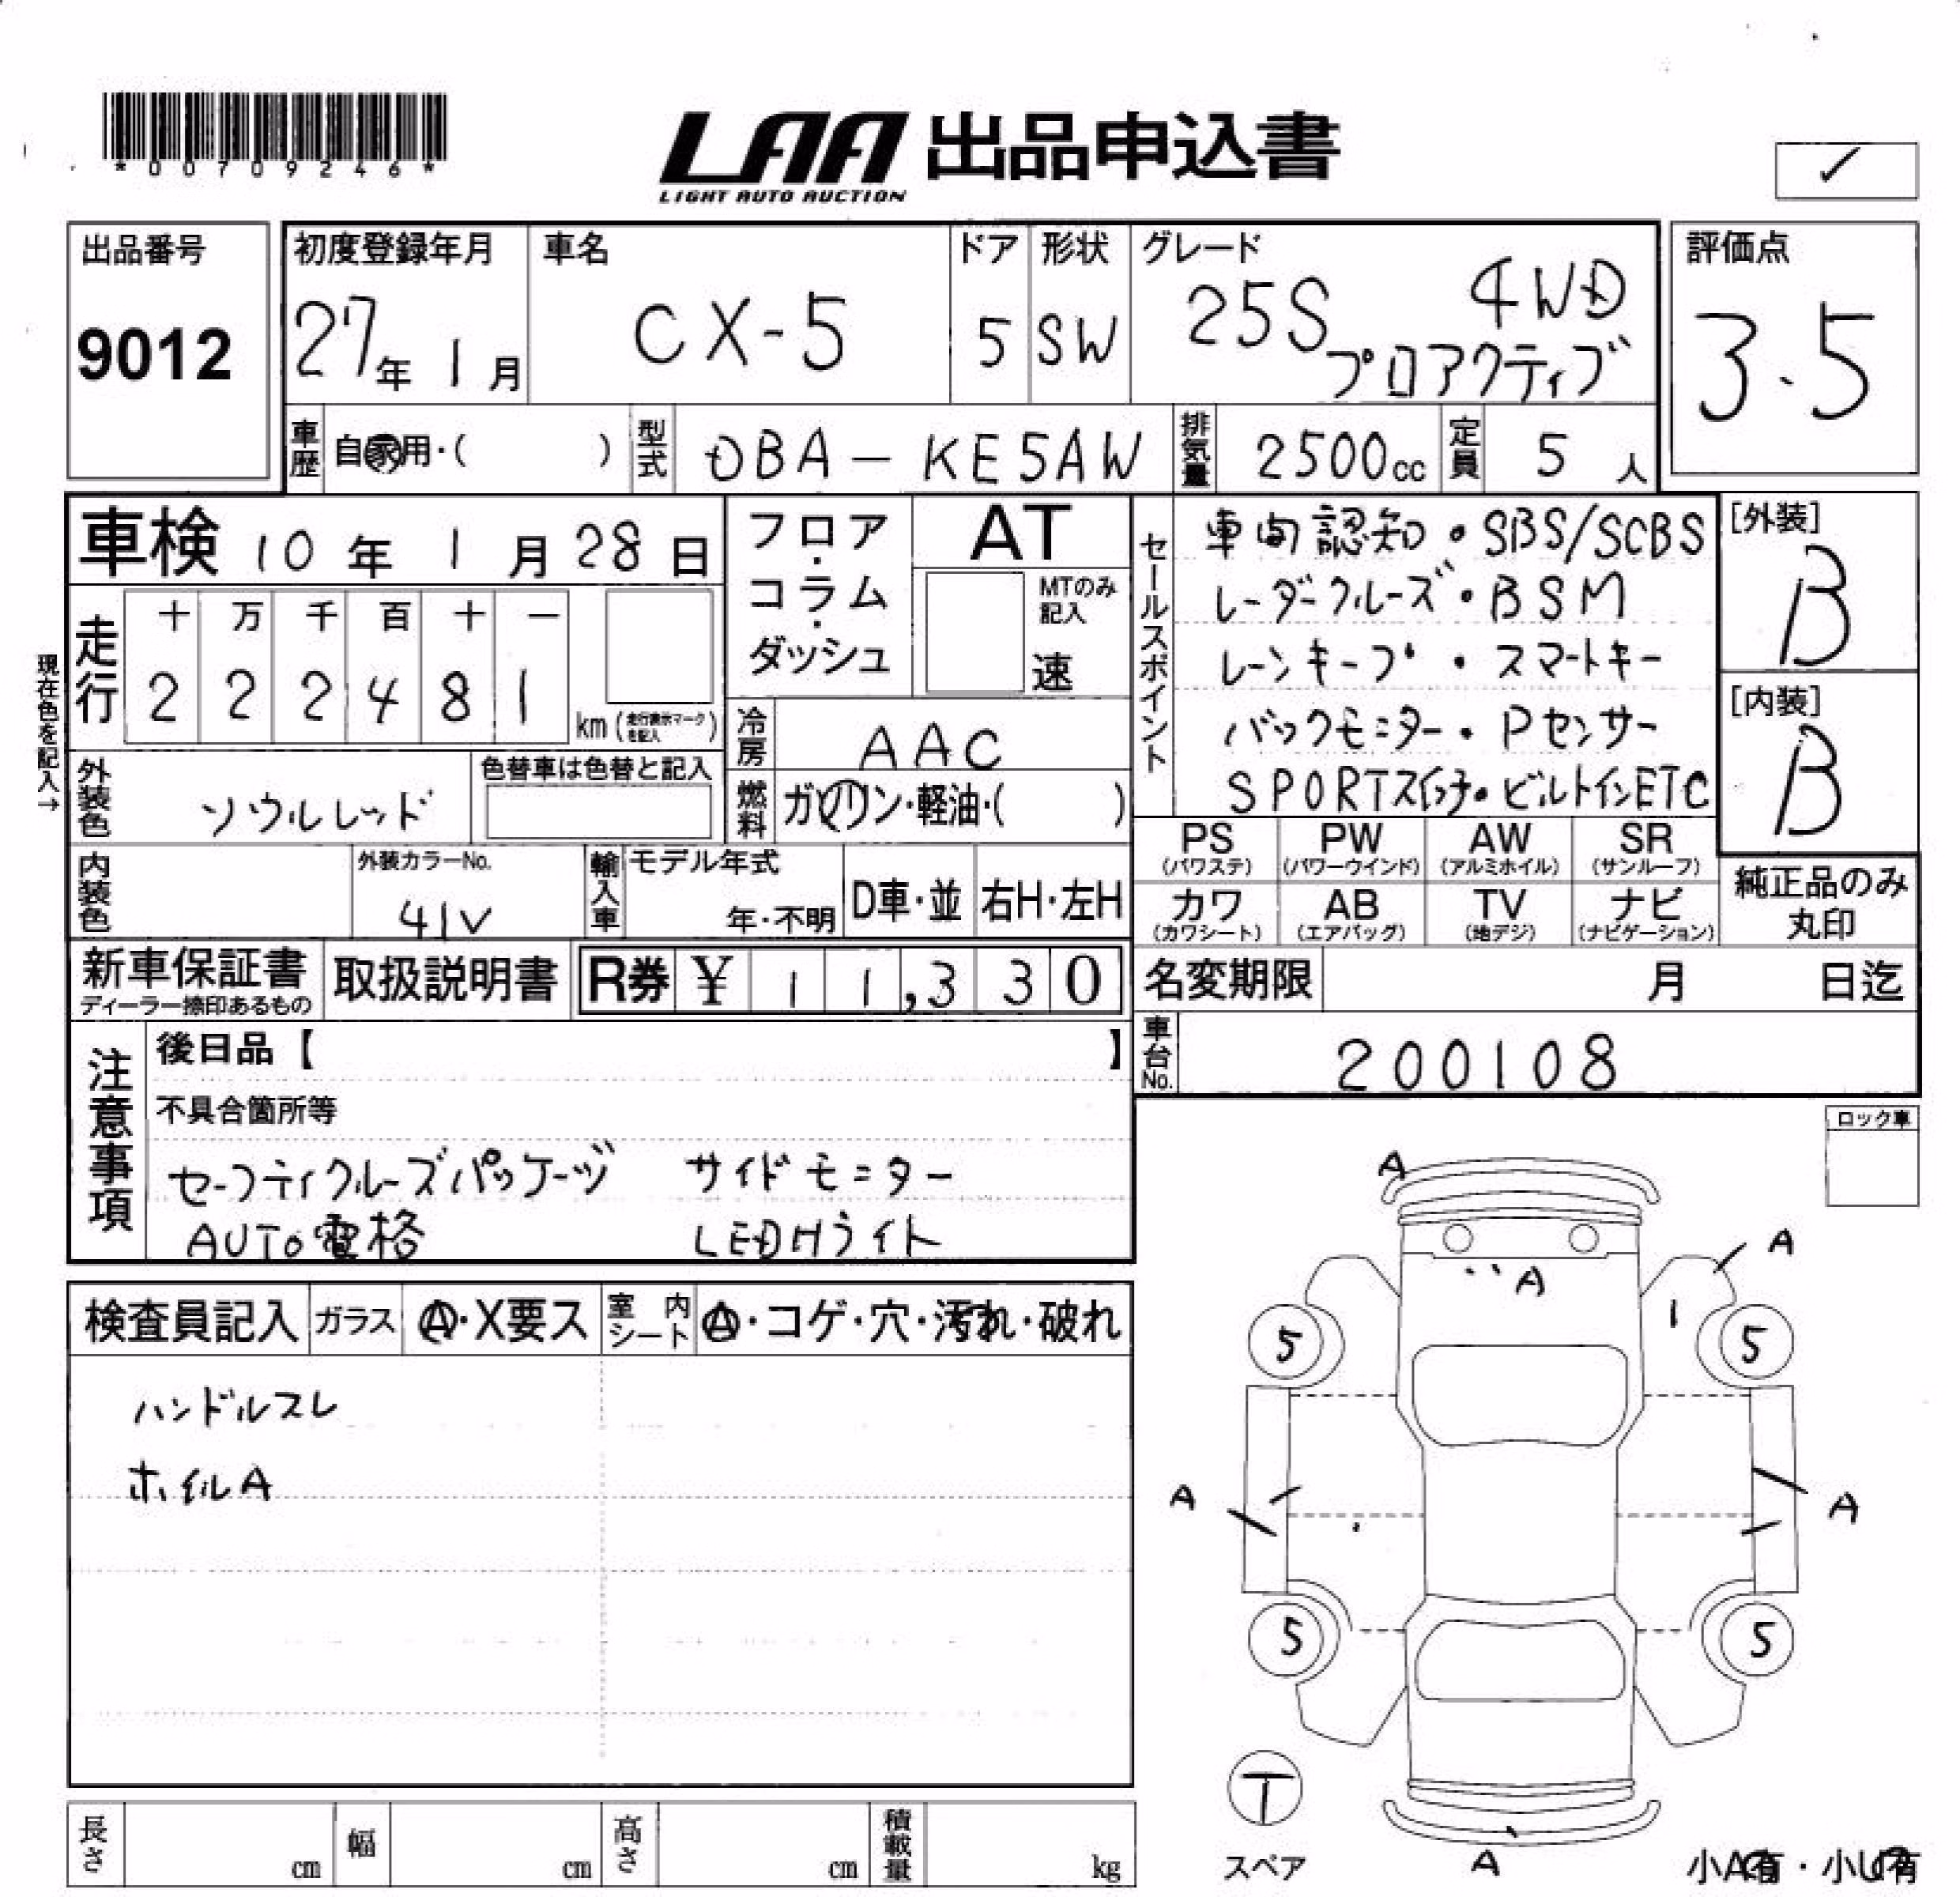 *00709246*
LAA 出品申込書
LIGHT AUTO AUCTION
出品番号
9012
初度登録年月
27年 1月
車名
CX-5
ドア
5
形状
SW
グレード
25S 4WD
プロアクティブ
評価点
3.5
車歴
自家用・( )
型式
DBA-KE5AW
排気量
2500cc
定員
5人
車検 10年 1月28日
フロア・コラム・ダッシュ
AT
MTのみ記入
速
セールスポイント
車両認知・SBS/SCBS
レーダークルーズ・BSM
レーンキープ・スマートキー
バックモニター・Pセンサー
SPORTスイッチ・ビルトインETC
[外装]
B
[内装]
B
現在色を記入→
走行
十 万 千 百 十 一
2 2 2 4 8 1
km (走行表示マークを記入)
冷房
AAC
外装色
ソウルレッド
色替車は色替と記入
燃料
ガソリン・軽油・( )
PS (パワステ)
PW (パワーウインド)
AW (アルミホイル)
SR (サンルーフ)
カワ (カワシート)
AB (エアバッグ)
TV (地デジ)
ナビ (ナビゲーション)
純正品のみ丸印
内装色
外装カラーNo.
41V
輸入車
モデル年式
年・不明
D車・並
右H・左H
新車保証書
ディーラー捺印あるもの
取扱説明書
R券 ¥ 11,330
名変期限 月 日迄
車台No.
200108
注意事項
後日品【 】
不具合箇所等
セーフティクルーズパッケージ サイドモニター
AUTO電格 LEDHライト
ロック車
検査員記入
ガラス
A・X要ス
室内シート
A・コゲ・穴・汚れ・破れ
ハンドルスレ
ホイルA
A
A
A
5 5
A A
5 5
T
スペア
A
小A有・小U有
長さ cm
幅 cm
高さ cm
積載量 kg